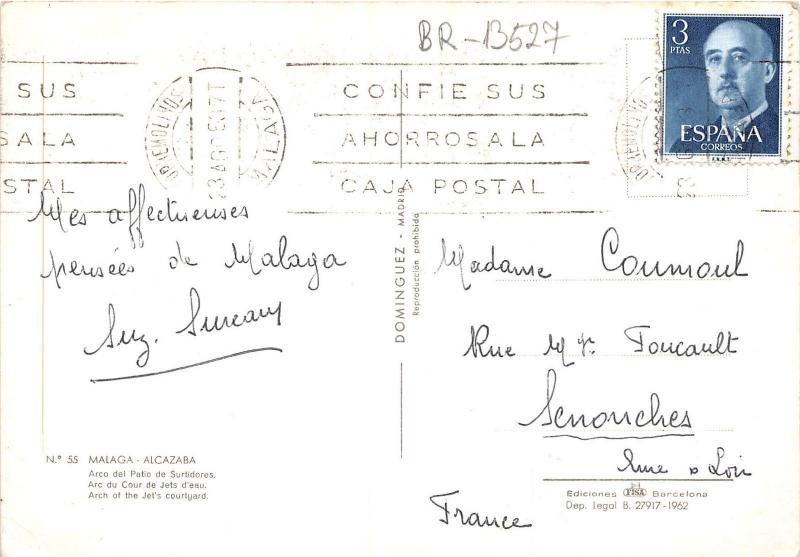 BR-13527
3
PTAS
ESPAÑA
CORREOS
F.N.M.T.
SUS
SALA
STAL
CONFIE SUS
AHORROS A LA
CAJA POSTAL
MALAGA
Mes affectueuses
pensées de Malaga
Suz. Sureau
DOMINGUEZ - MADRID
Reproducción prohibida
Madame Coumoul
Rue Mgr. Foucault
Senonches
Eure & Loir
France
N.º 55 MALAGA - ALCAZABA
Arco del Patio de Surtidores.
Arc du Cour de Jets d'eau.
Arch of the Jet's courtyard.
Ediciones FISA Barcelona
Dep. Legal B. 27917-1962